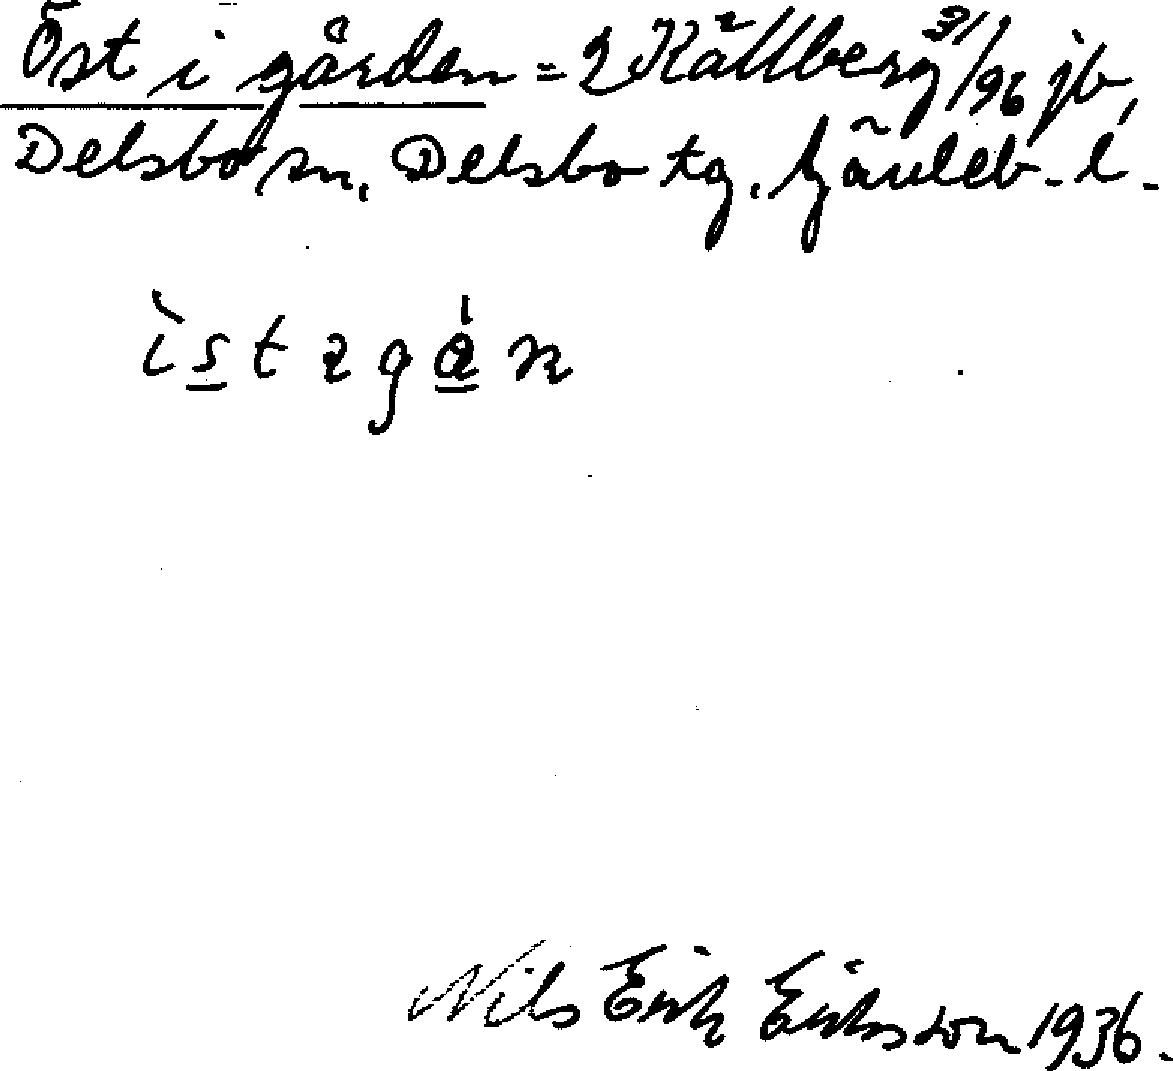 Öst i gården = 2 Källberg 31/96 jb,
Delsbo sn, Delsbo tg, Gävleb. l.
ìstzgán
Nils Erik Eriksson 1936.